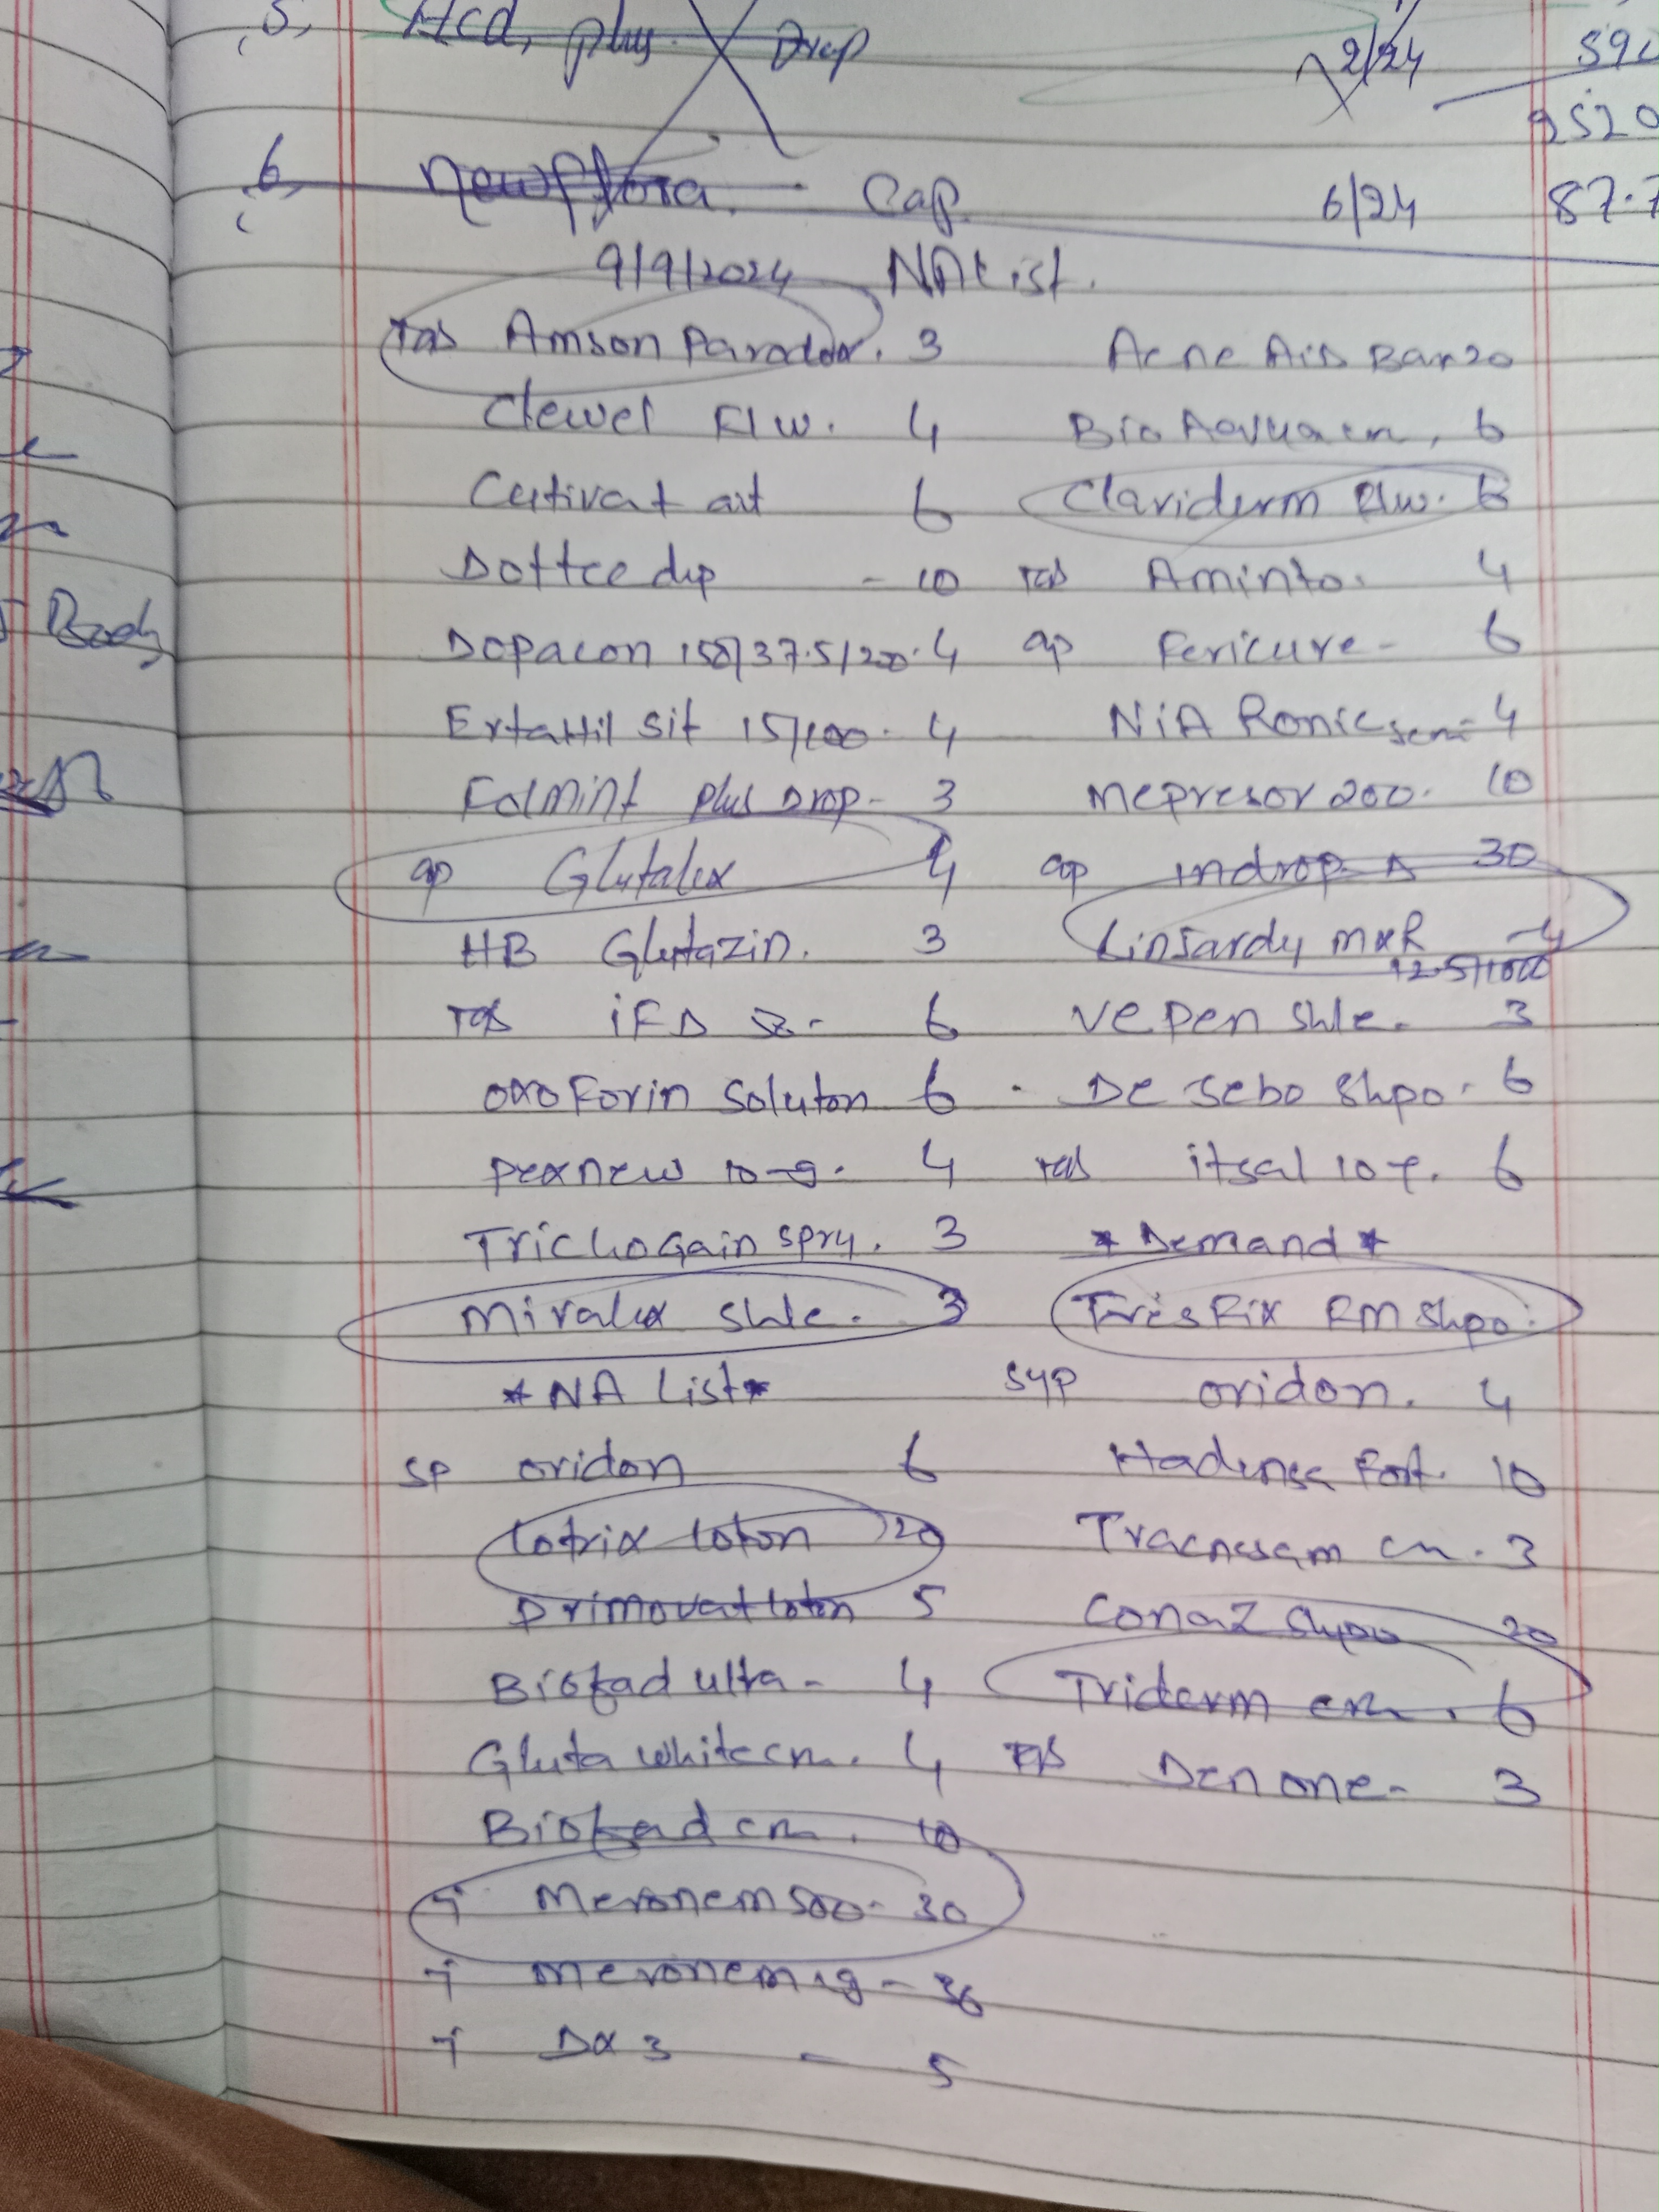 5, Hcd, plus Drop 2/24 590
2520
6, Newflora. Cap. 6/24 87.7
9/9/2024 NA List.
Tab Amson Parador. 3 Acne Aid Bar 20
Clewel F/w. 4 Bio Aquacm, 6
Cutivat oit 6 Claviderm F/w. 6
Dottce dip - 10 Tab Aminto. 4
Dopacon 150/37.5/200. 4 cap Fericure - 6
Ertattil Sit 15/100. 4 NiA Ronic - 4
Folmint plus Drop - 3 mepresor 200. 10
cap Glutalex 4 cap indrop. D 30
HB Glutazin. 3 Linjardy MXR - 4
12.5/1000
Tab iFD - 6 Vepen Shle. 3
oxoForin Soluton 6 . De Sebo Shpo. 6
pexnew 10-g. 4 Tab itsal 10 6
TrichoGain Spry. 3 *Demand*
Miralex Shle. 3 Trisfix RM Shpo.
*NA List* Syp oridon. 4
SP oridon 6 Hadensa Fort. 10
Lotrix Loton 20 cm. 3
Drimovat loton 5 Conaz Shpo 20
Biofad ulta - 4 Triderm cm. 6
Gluta white cm. 4 Tab Denone - 3
Biofad cm. 10
i Meronem 500 - 30
i meronem 1g - 36
i DX 3 - 5
Body